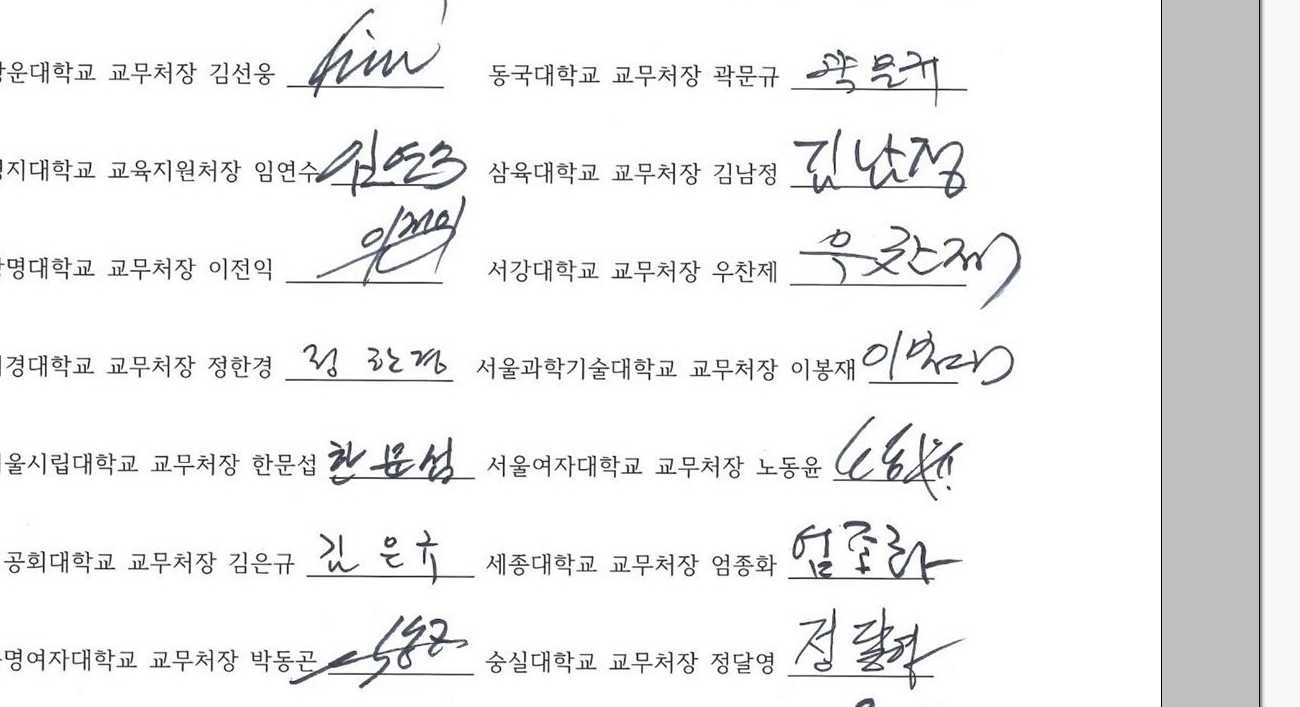 운대학교 교무처장 김선웅 Kim 동국대학교 교무처장 곽문규 곽문규
지대학교 교육지원처장 임연수 임연수 삼육대학교 교무처장 김남정 김남정
명대학교 교무처장 이전익 이전익 서강대학교 교무처장 우찬제 우찬제
경대학교 교무처장 정한경 정한경 서울과학기술대학교 교무처장 이봉재 이봉재
울시립대학교 교무처장 한문섭 한문섭 서울여자대학교 교무처장 노동윤
공회대학교 교무처장 김은규 김은규 세종대학교 교무처장 엄종화 엄종화
명여자대학교 교무처장 박동곤 숭실대학교 교무처장 정달영 정달영